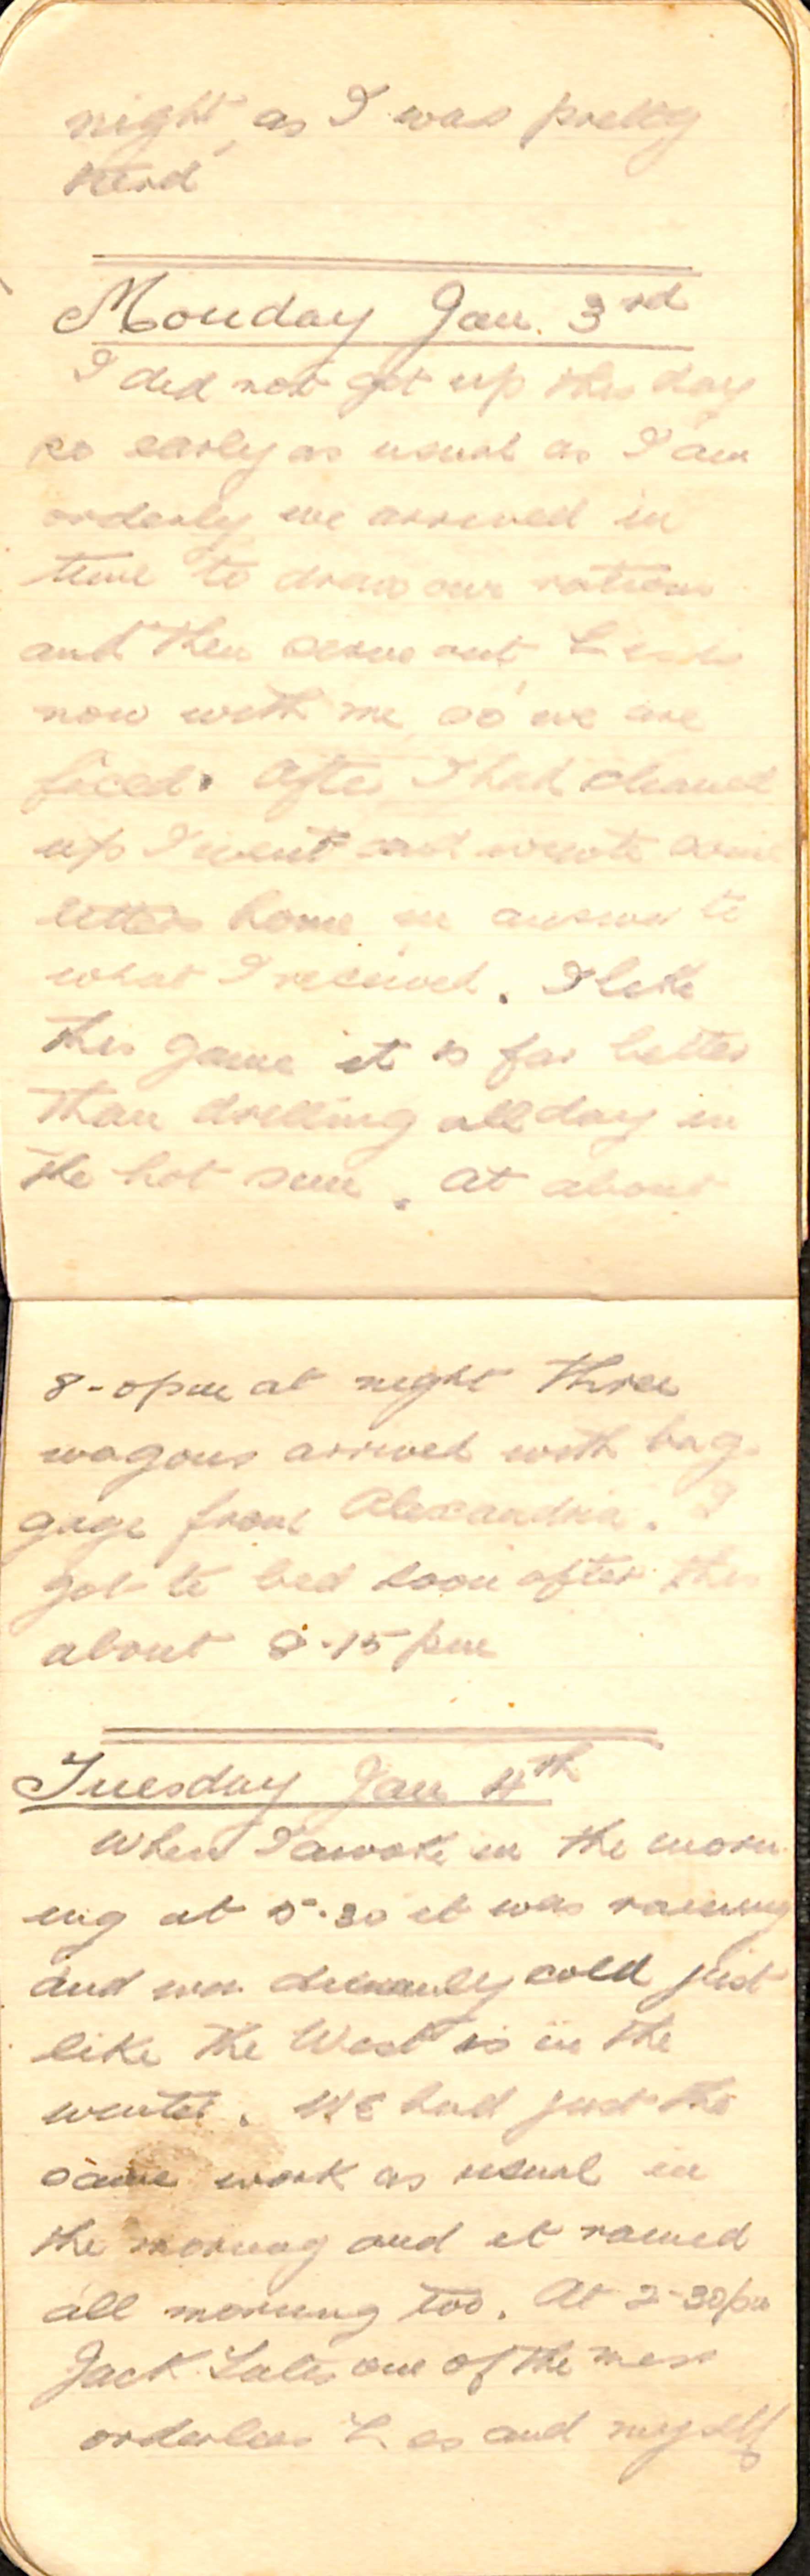 night, as I was pretty
tired
Monday Jan. 3rd
I did not get up this day
so early as usual as I am
orderly we arrived in
time to draw our rations
and then serve out, Les is
now with me, so we are
After I had cleaned
up I went and wrote some
letters home in answer to
what I received. I like
this game it is far better
than drilling all day in
the hot sun. At about
8-0pm at night three
wagons arrived with bag-
gage from Alexandria. I
got to bed soon after this
about 8.15 pm
Tuesday Jan 4th
When I awoke in the morn
ing at 5.30 it was raining
and was cold just
like the West is in the
winter. We had just the
same work as usual in
the morning and it rained
all morning too. At 2-30pm
Jack one of the mess
orderlies Les and myself